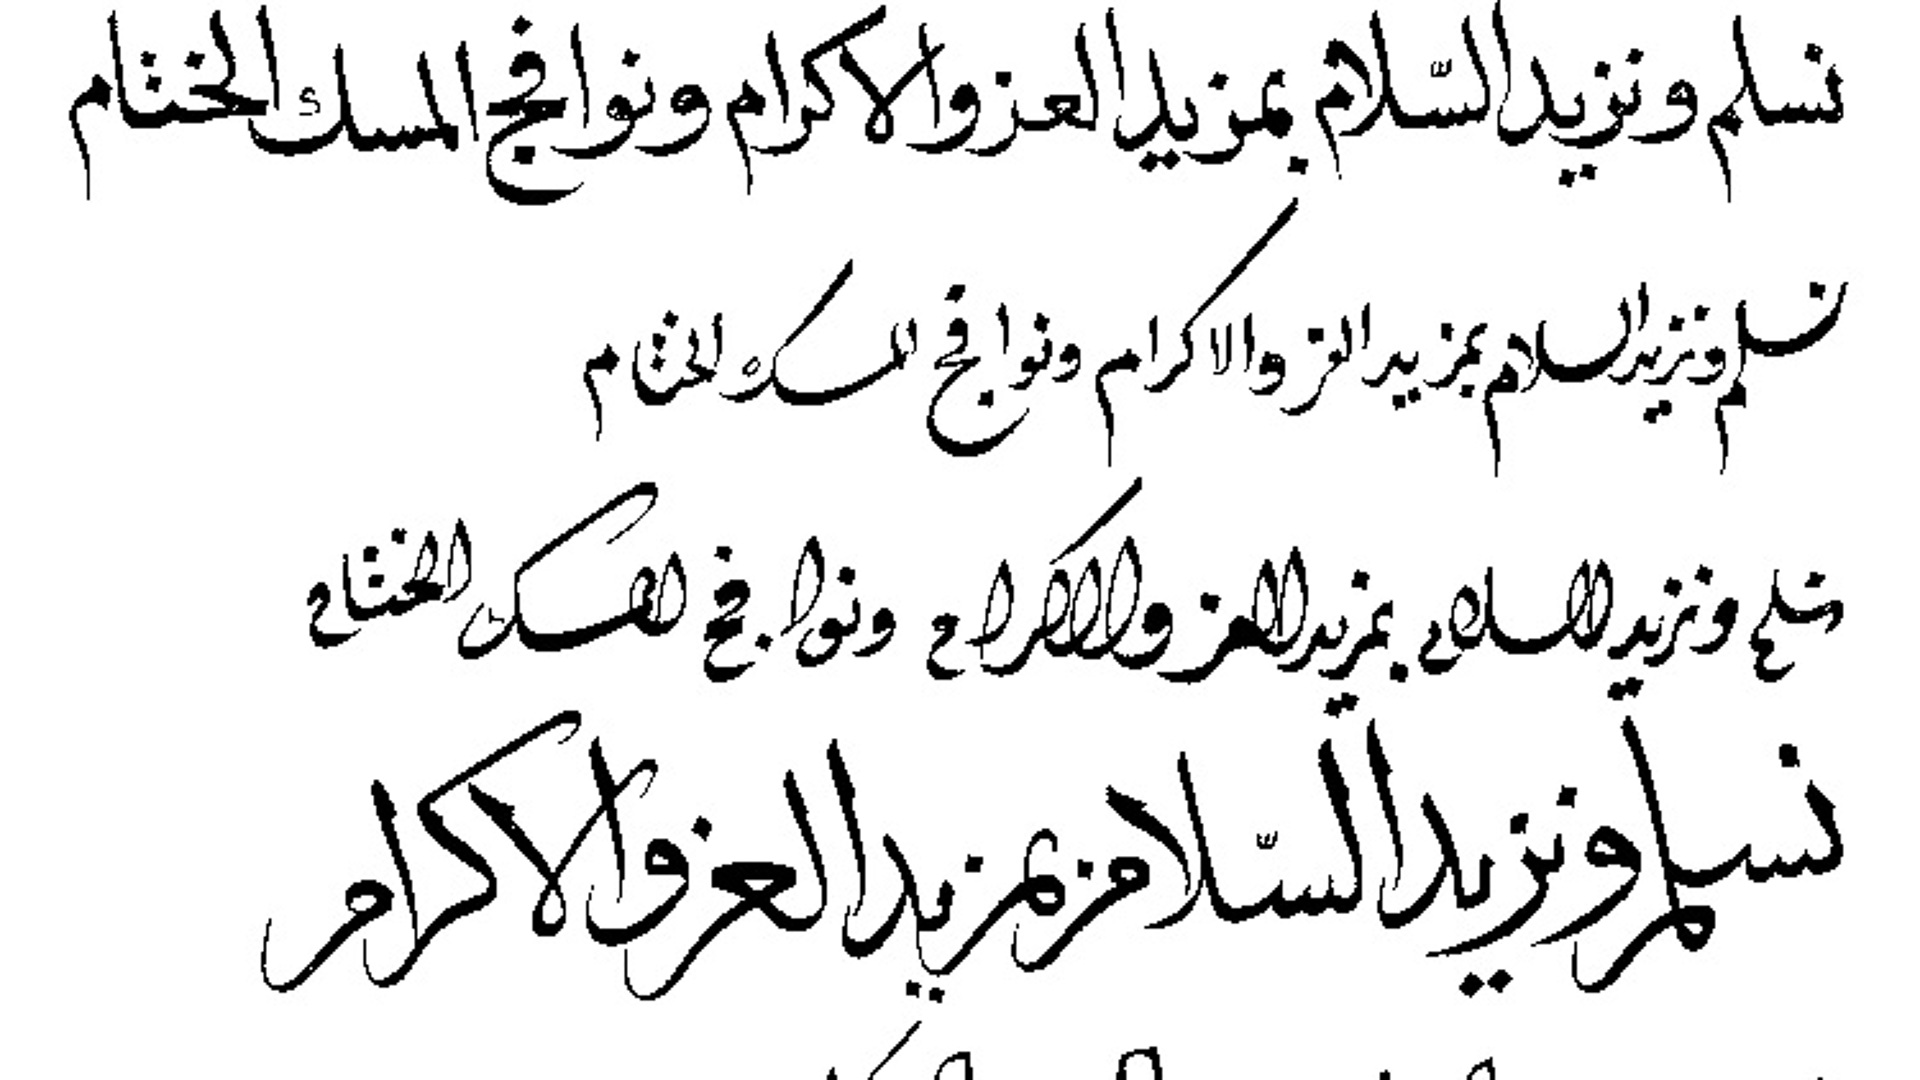 نسلم ونزيد السّلام بمزيد العز والاكرام ونوافج المسك الختام
نسلم ونزيد السلام بمزيد العز والاكرام ونوافج المسك الختام
نسلم ونزيد السلام بمزيد العز والاكرام ونوافج المسك الختام
نسلم ونزيد السّلام بمزيد العز والاكرام